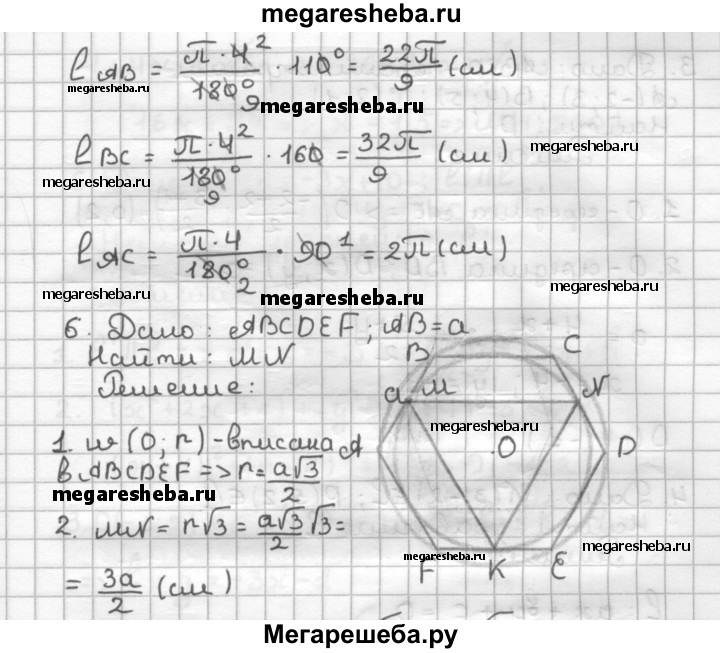 megaresheba.ru
l AB = π·4² / 180° · 110° = 22π / 9 (см)
9
megaresheba.ru
megaresheba.ru
l BC = π·4² / 180° · 160 = 32π / 9 (см)
9
megaresheba.ru
megaresheba.ru
l AC = π·4 / 180° · 90 1 = 2π (см)
2
megaresheba.ru
megaresheba.ru
megaresheba.ru
6. Дано: ABCDEF; AB = a
Найти: MN
Решение:
B C
a M N
1. ω (O; r) - вписана
A O D
megaresheba.ru
в ABCDEF => r = a√3 / 2
megaresheba.ru
2. MN = r√3 = a√3 / 2 √3 =
= 3a / 2 (см)
megaresheba.ru
megaresheba.ru
F K E
Мегарешеба.ру